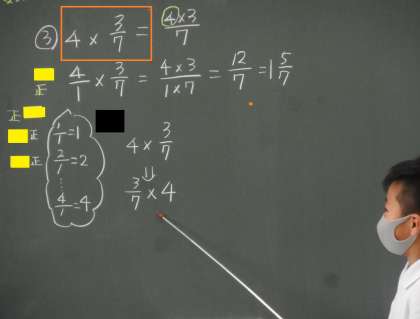 ③ 4 × 3/7 = 4×3/7
正 4/1 × 3/7 = 4×3/1×7 = 12/7 = 1 5/7
正
正 1/1 = 1
正 2/1 = 2
⋮
4/1 = 4
4 × 3/7
⇓
3/7 × 4